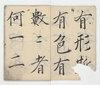 有形
有色有
數〻者
何一二